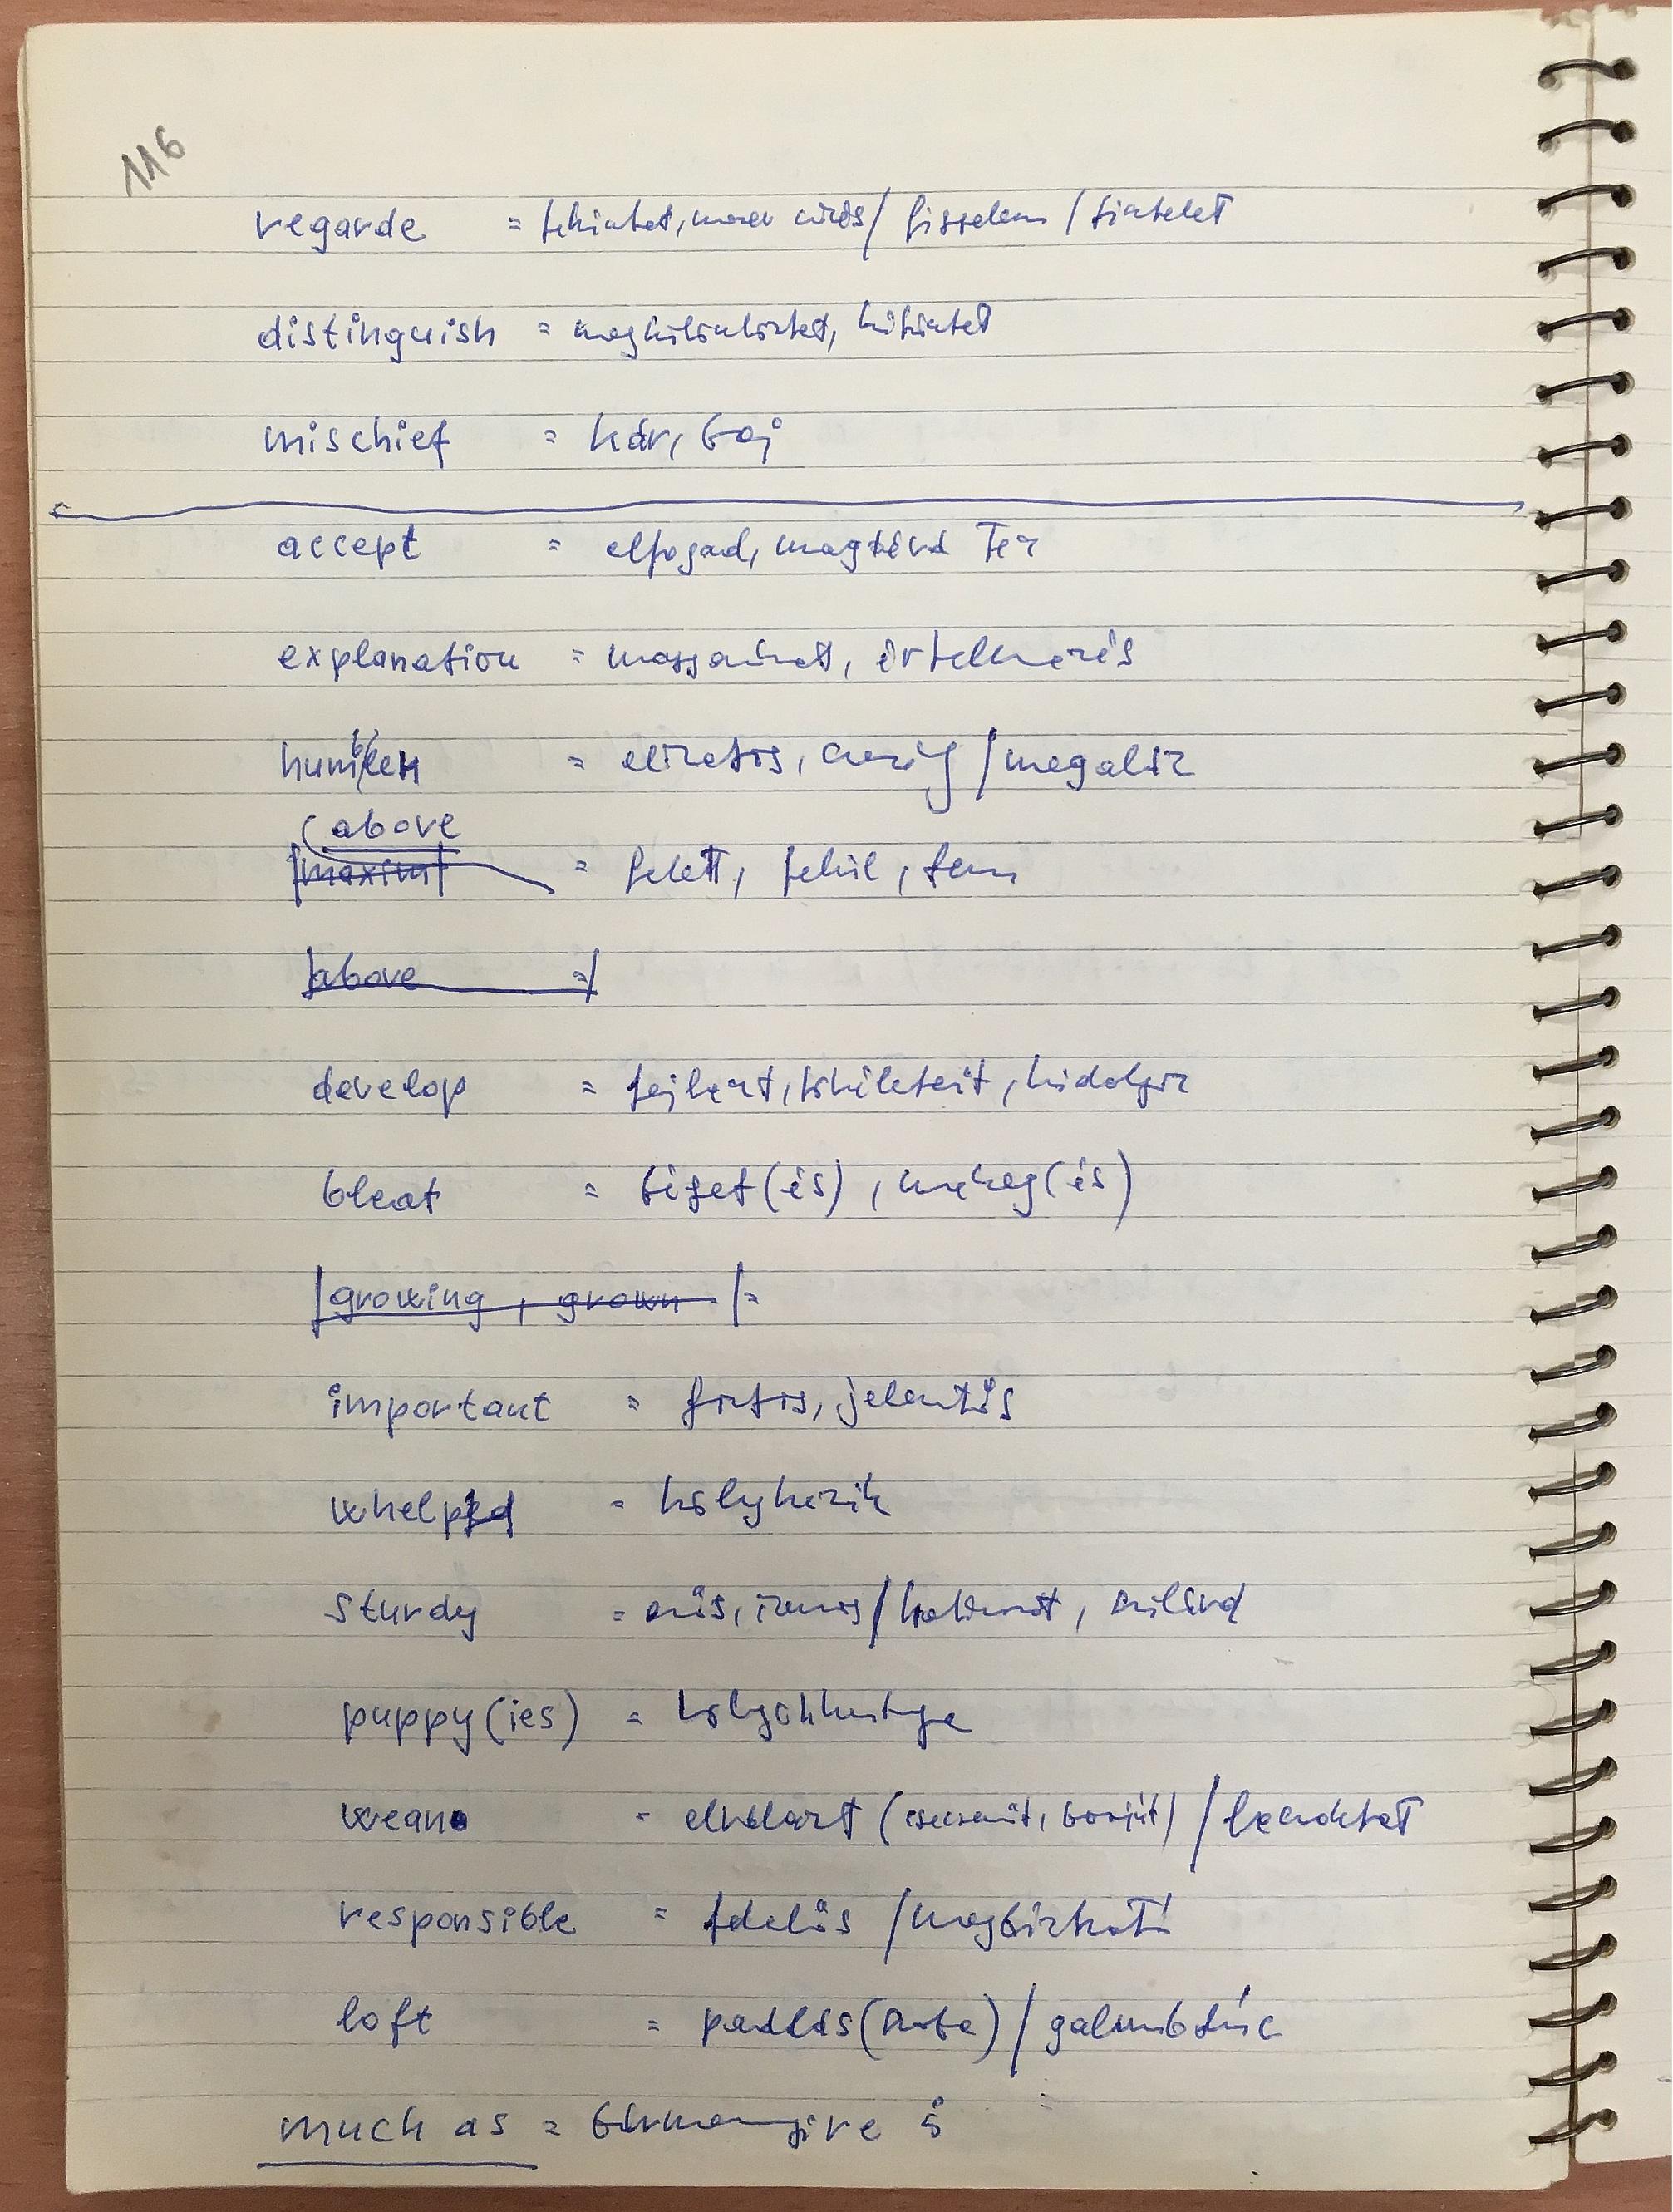 116
regarde = tekintet, / figyelem / tisztelet
distinguish = megkülönböztet, kitüntet
mischief = kár, baj
accept = elfogad, magáévá tesz
explanation = magyarázat, értelmezés
humble = alázatos, szerény / megaláz
above
maxim = felett, felül, fenn
above =
develop = fejleszt, tökéletesít, kidolgoz
bleat = béget(és), mekeg(és)
growing, grown =
important = fontos, jelentős
whelp = kölykezik
sturdy = erős, izmos / határozott, szilárd
puppy(ies) = kölyökkutya
wean = elválaszt (csecsemőt, borjút) / leszoktat
responsible = felelős / megbízható
loft = padlás(szoba) / galambdúc
much as = bármennyire is